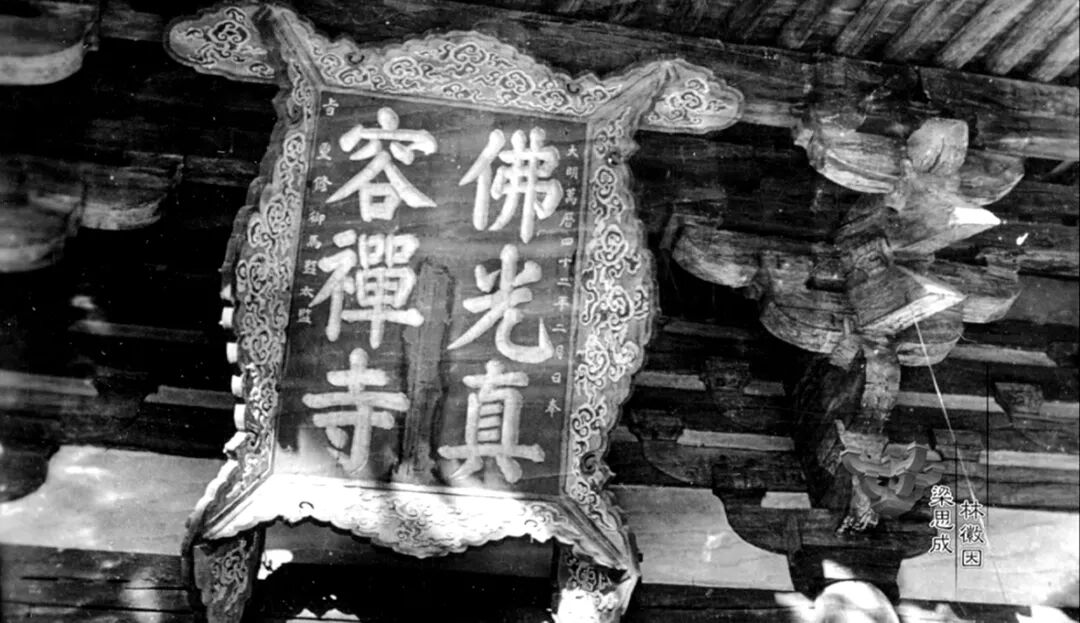 大明萬曆四十二年二月日奉
佛光真
容禪寺
旨
御馬監太監
林徽因
梁思成